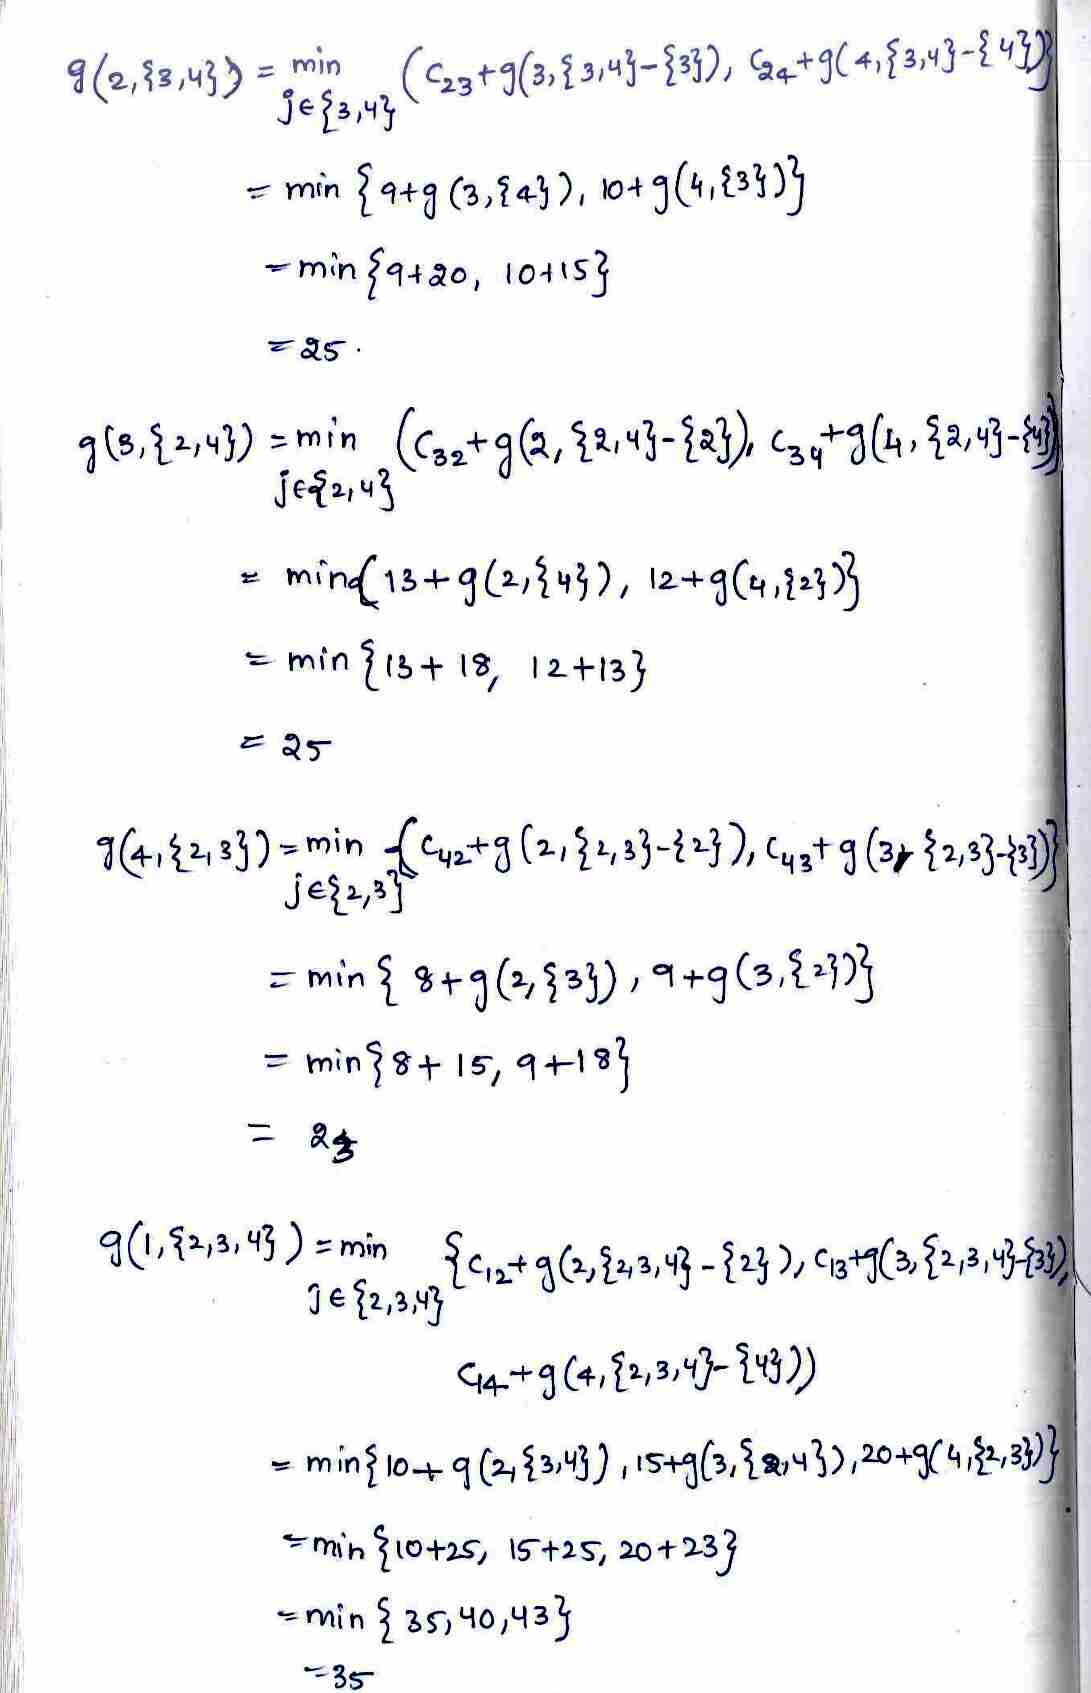 g(2,{3,4}) = min (C23+g(3,{3,4}-{3}), C24+g(4,{3,4}-{4})}
j∈{3,4}
= min {9+g(3,{4}), 10+g(4,{3})}
= min {9+20, 10+15}
= 25.
g(3,{2,4}) = min (C32+g(2,{2,4}-{2}), C34+g(4,{2,4}-{4})
j∈{2,4}
= min{13+g(2,{4}), 12+g(4,{2})}
= min {13+18, 12+13}
= 25
g(4,{2,3}) = min {C42+g(2,{2,3}-{2}), C43+g(3,{2,3}-{3})}
j∈{2,3}
= min { 8+g(2,{3}), 9+g(3,{2})}
= min {8+15, 9+18}
= 23
g(1,{2,3,4}) = min {C12+g(2,{2,3,4}-{2}), C13+g(3,{2,3,4}-{3}),
j∈{2,3,4}
C14+g(4,{2,3,4}-{4}))
= min{10+g(2,{3,4}), 15+g(3,{2,4}), 20+g(4,{2,3})}
= min {10+25, 15+25, 20+23}
= min { 35, 40, 43}
= 35